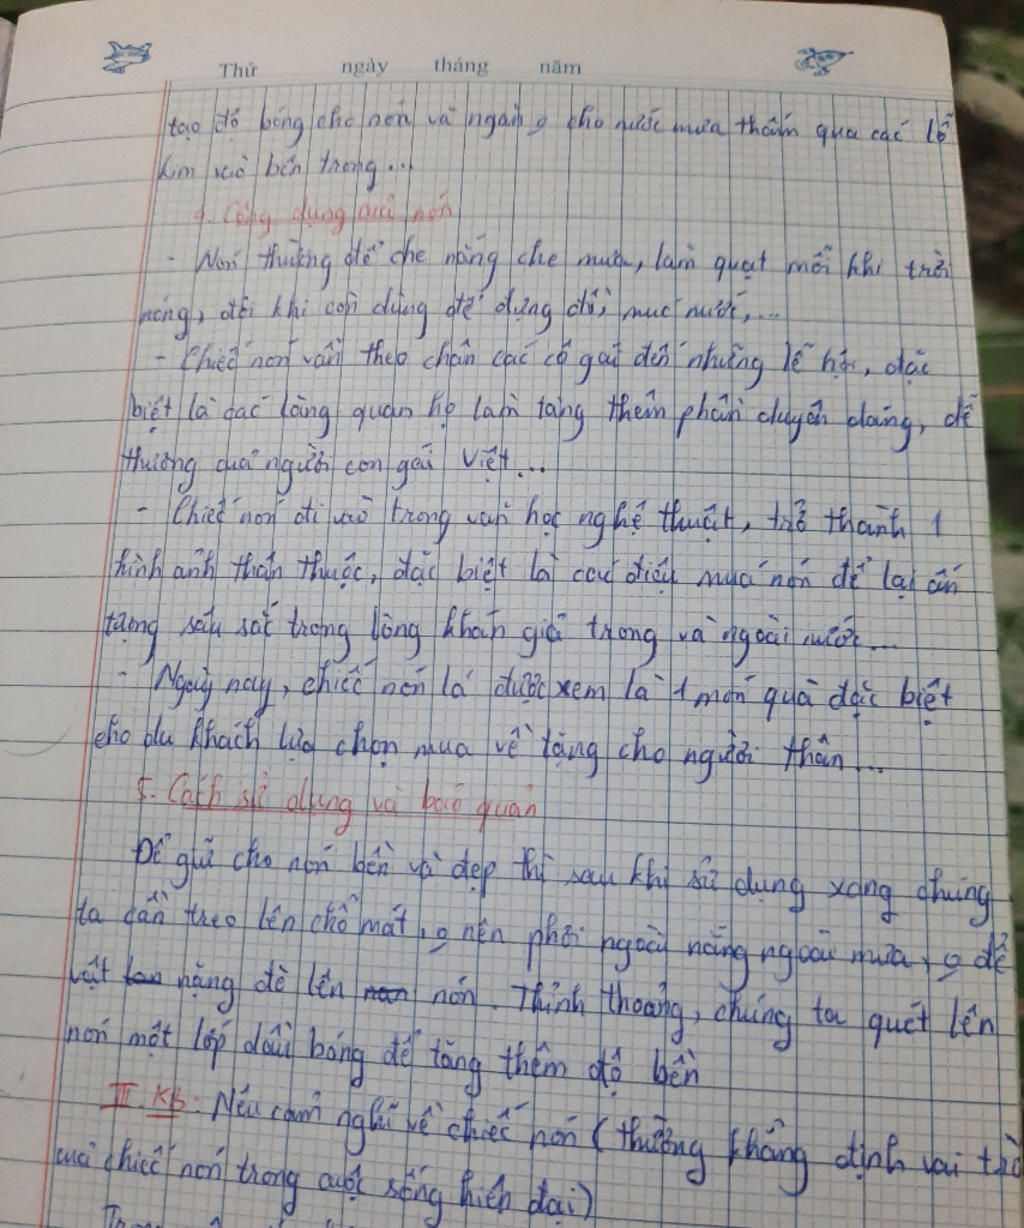 Thứ ngày tháng năm
tạo độ bóng cho nón và ngăn o cho nước mưa thấm qua các lỗ
kim vào bên trong...
4. Công dụng của nón
- Nón thường để che nắng che mưa, làm quạt mỗi khi trời
nóng, đôi khi còn dùng để đựng đồ, múc nước,...
- Chiếc nón vẫn theo chân các cô gái đến những lễ hội, đặc
biệt là các làng quan họ làm tăng thêm phần duyên dáng, dễ
thương của người con gái Việt...
- Chiếc nón đi vào trong văn học nghệ thuật, trở thành 1
hình ảnh thân thuộc, đặc biệt là các điệu múa nón để lại ấn
tượng sâu sắc trong lòng khán giả trong và ngoài nước...
- Ngày nay, chiếc nón lá được xem là 1 món quà đặc biệt
cho du khách lựa chọn mua về tặng cho người thân...
5. Cách sử dụng và bảo quản
Để giữ cho nón bền và đẹp thì sau khi sử dụng xong chúng
ta cần treo lên chỗ mát, o nên phơi ngoài nắng ngoài mưa, o để
vật nặng đè lên nón. Thỉnh thoảng, chúng ta quét lên
nón một lớp dầu bóng để tăng thêm độ bền
III. KB: Nêu cảm nghĩ về chiếc nón (thường khẳng định vai trò
của chiếc nón trong cuộc sống hiện đại)